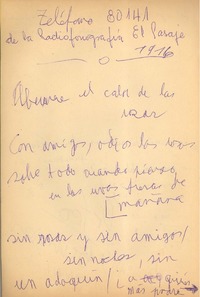 Teléfono 80141
de la Radiofonografía El Pasaje
1916
Aburre el calor de las
rosas
Con amigos, odio las rosas
sobre todo cuando
en las fuera de
mañana
sin rosas y sin amigos/
sin soles, sin
un adoquín/ ¿a quién
mas podre